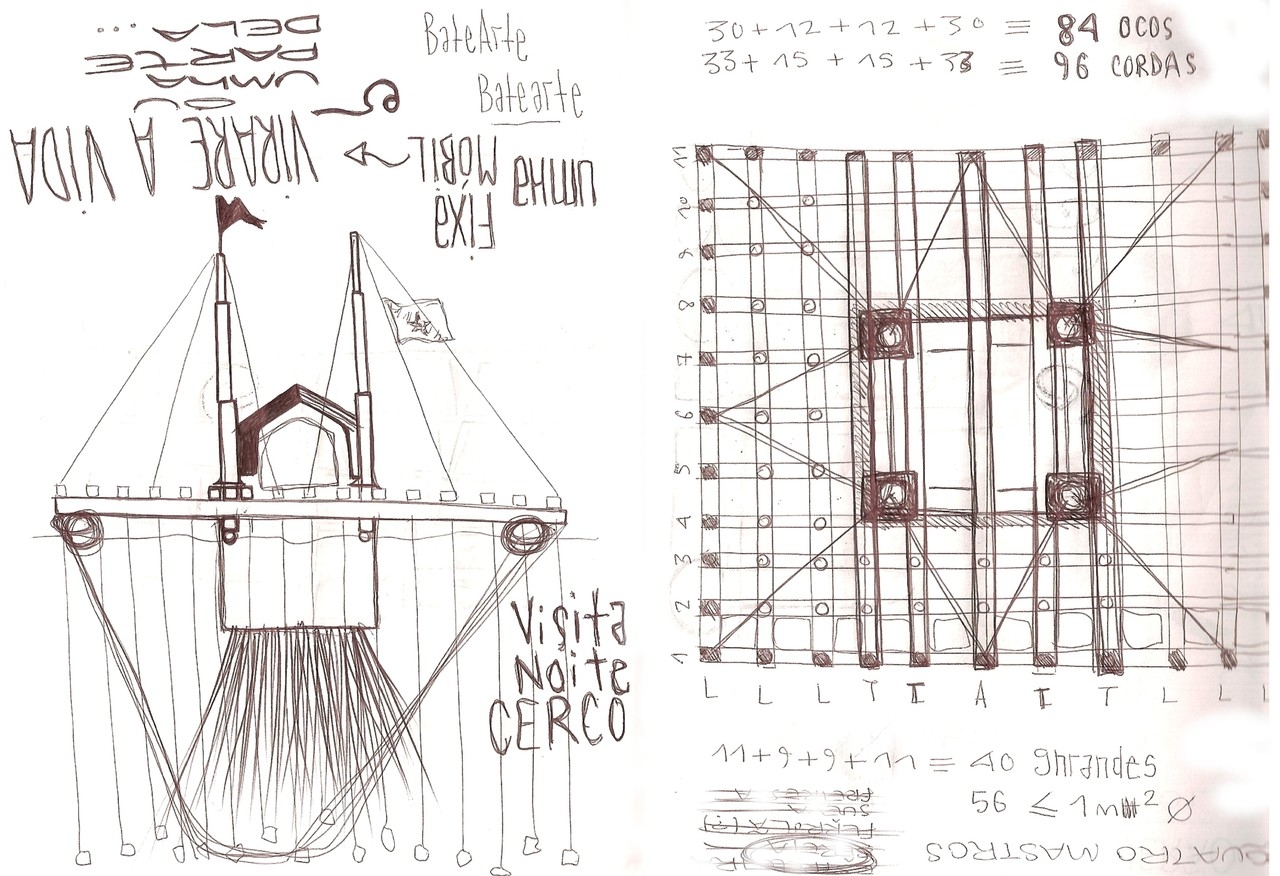 BateArte
Batearte
UMHA
FIXA
MÓBIL
VIRARE A VIDA
OU
UMHA
PARTE
DELA ...
Visita
Noite
CERCO
30+12+12+30 = 84 OCOS
33+15+15+33 = 96 CORDAS
11
10
9
8
7
6
5
4
3
2
1
L L L T I A I T L L L
11+9+9+11 = 40 ghrandes
56 ≤ 1 m² Ø
QUATRO MASTROS